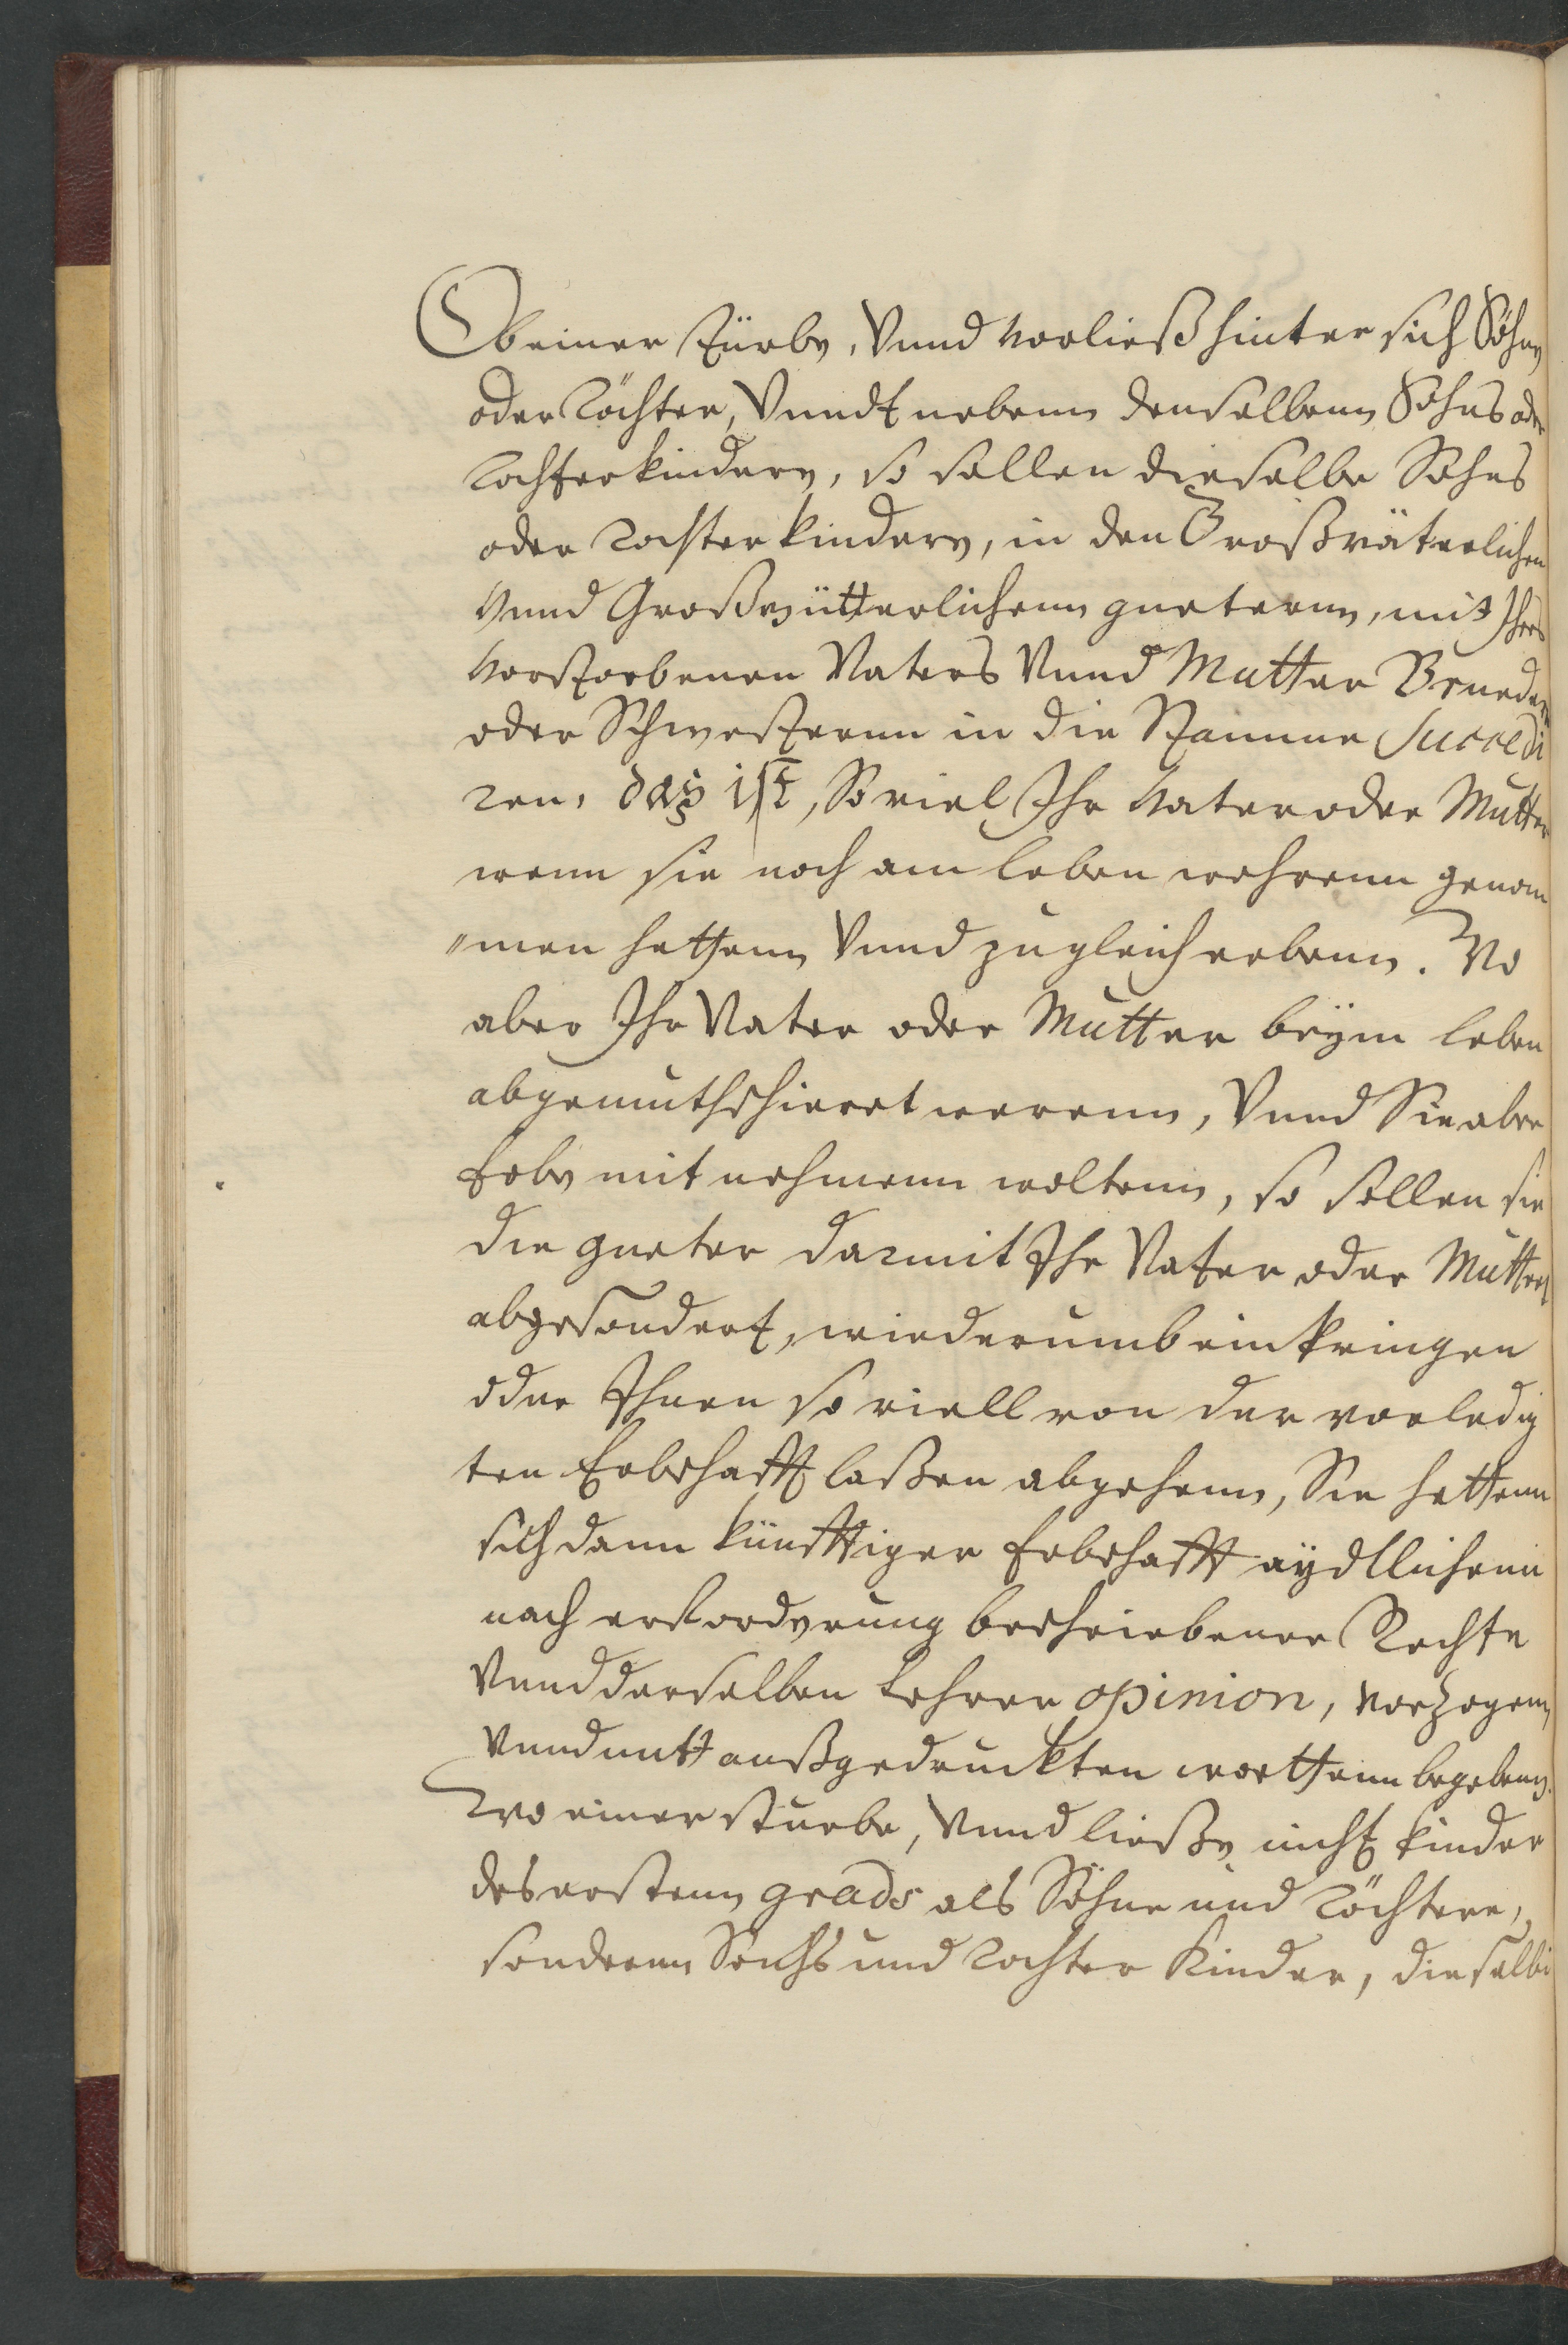 Ob einer stürbe, Vnnd verließ hinter sich Söhne
oder Töchter, Vnndt nebenn denselbenn Sohns oder
Tochterkindere, so sollen dieselbe Sohns
oder Tochterkindere, in den Großväterlichen
Vnnd Großmütterlichenn guetern, mit Ihres
Verstorbenen Vaters Vnnd Mutter Bruedern
oder Schwesternn in die Stamme Succedi
ren, das ist, So viel Ihr Vater oder Mutter
wenn sie noch am leben wehrenn genom
"men hettenn Vnnd zugleich erbenn. Wo
aber Ihr Vater oder Mutter beÿm leben
abgemuthschieret werenn, Vnnd Sie aber
Erbe mit nehmenn woltenn, so sollen sie
die gueter darmit Ihr Vater oder Mutter
abgesondert, wiederumb einbringen
oder Ihnen so viell von der verledig
ten Erbschafft laßen abgehenn, Sie hettenn
sich dann künfftiger Erbschafft aÿdtlichenn
nach erforderung beschriebener Rechte
Vnnd derselben Lehrer opinion, verzogenn
Vnnd mitt außgedruckten worttenn begebenn.
Wo einer stuerbe, Vnnd ließe nicht kinder
des erstenn grads als Söhne und Töchtere,
sonderen Sohns und Tochter Kinder, dieselbi